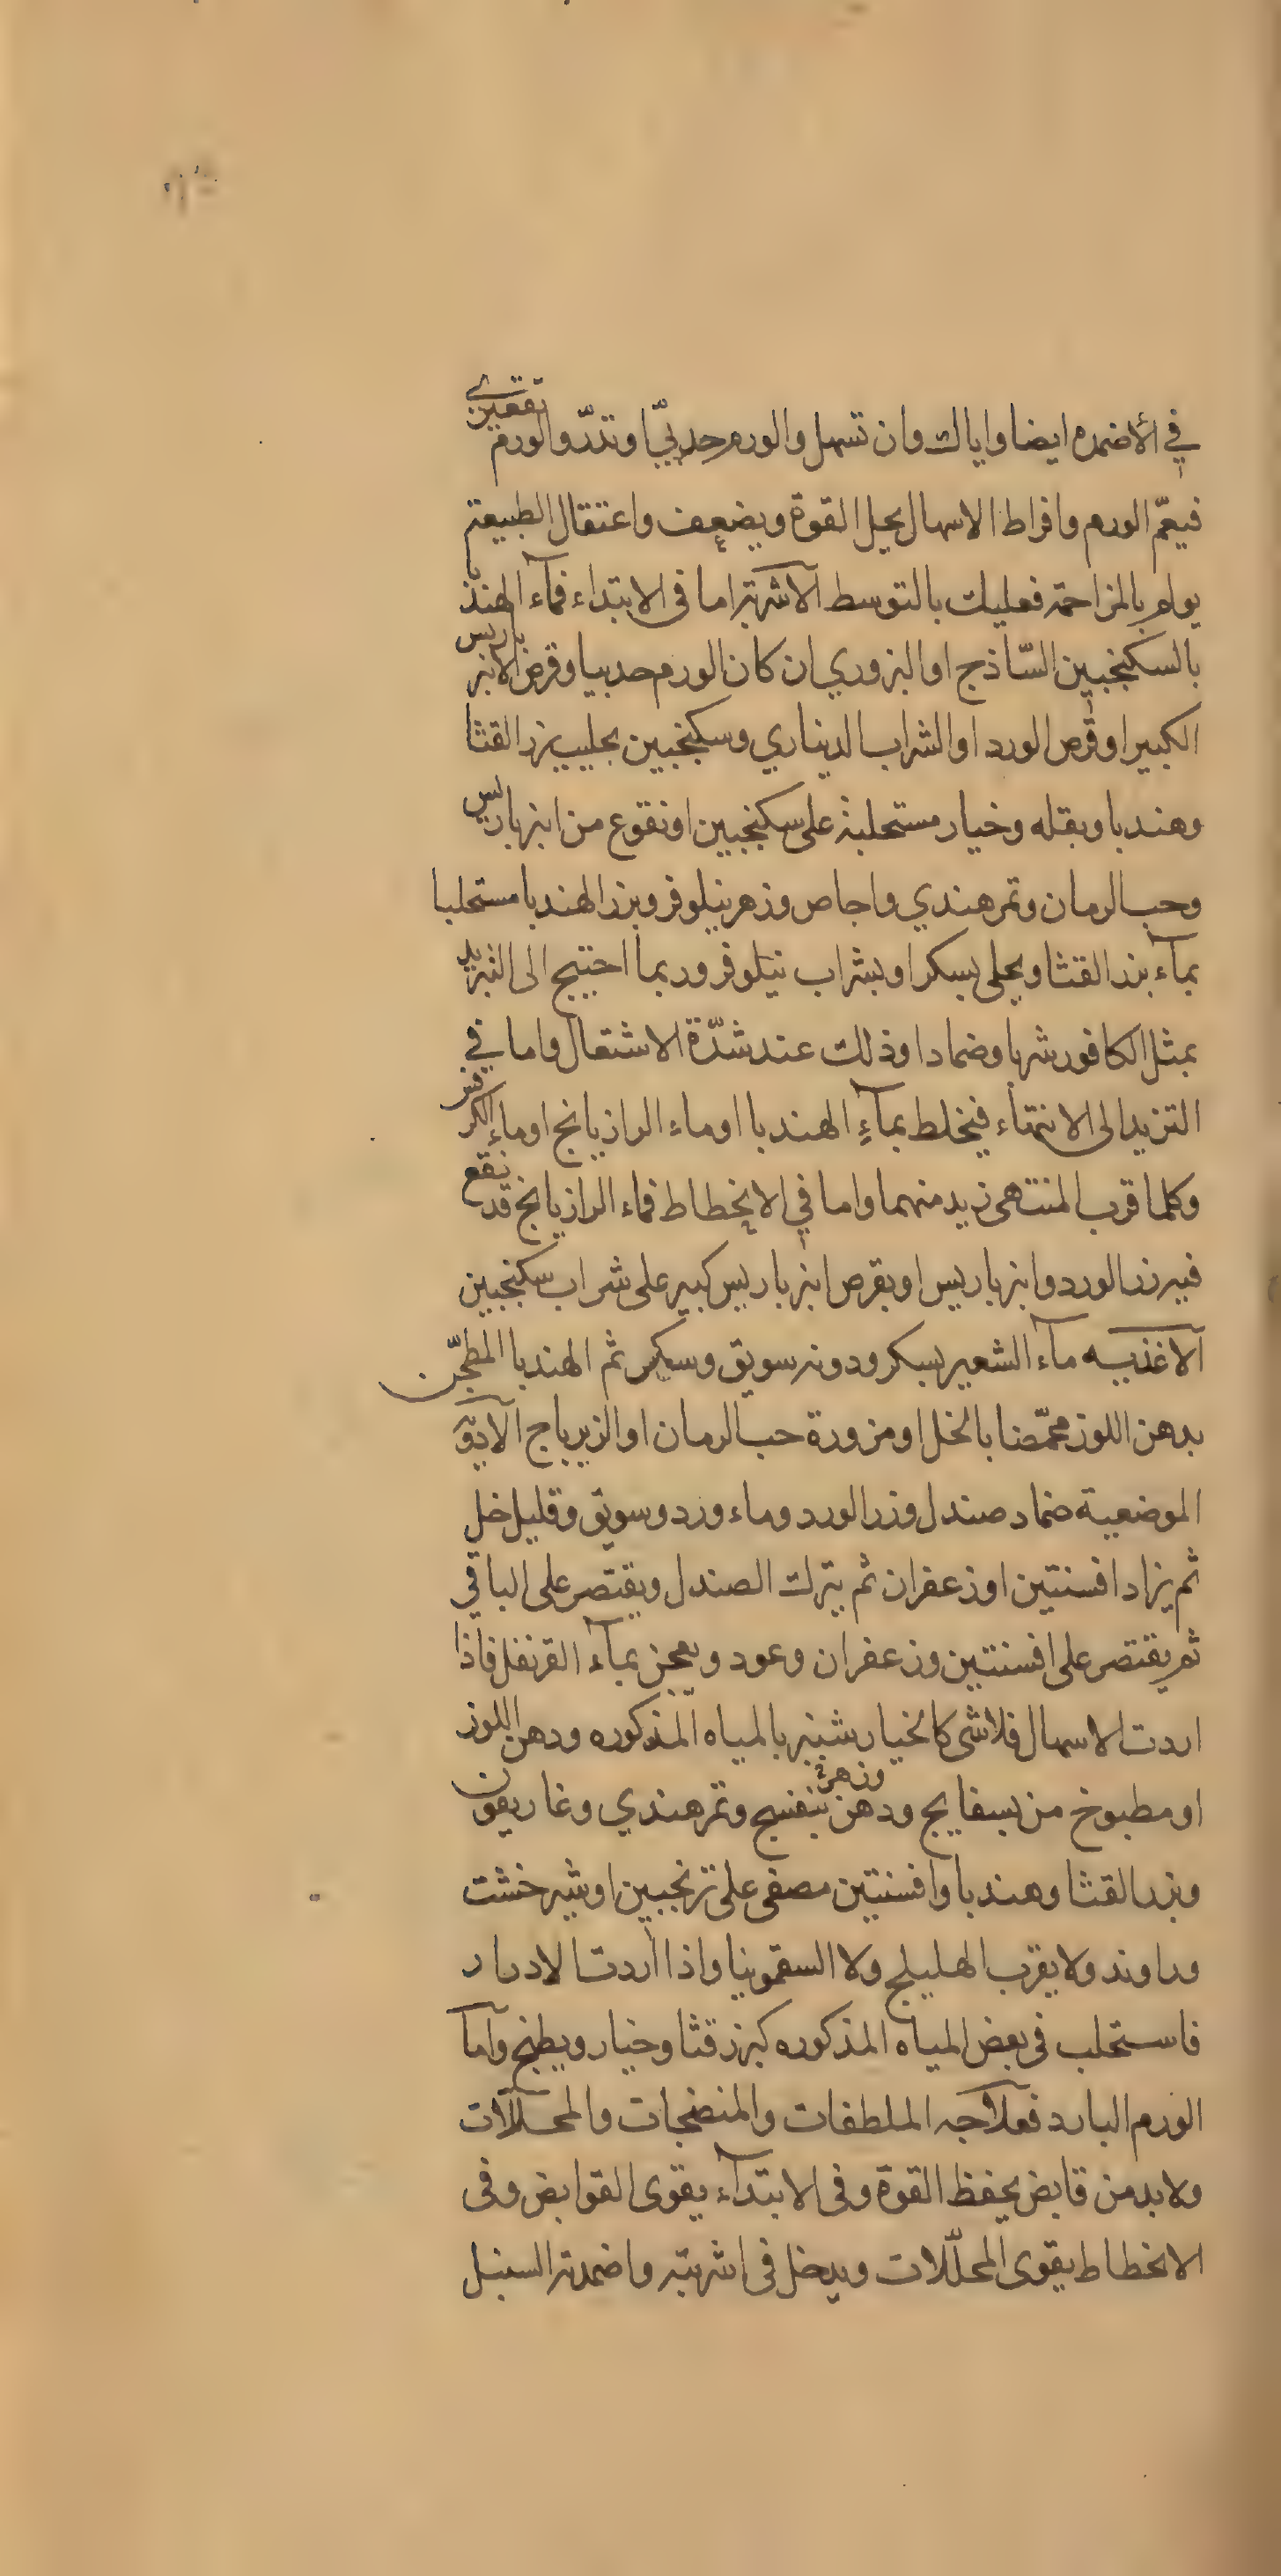 في الأضمده ايضا واياك وان تسهل والورم حدبيّا وتدرّ والورم تقعيري
فيعمّ الورم وافراط الاسهال يحل القوة ويضعف واعتقال الطبيعة
يولم بالمزاحمة فعليك بالتوسط الاشربة اما في الابتداء فمآء الهندبا
بالسكنجبين السّاذج او البزوري ان كان الورم حدبيا وقرص الانبرباريس
الكبير او قرص الورد او الشراب الديناري وسكنجبين بحليب بزر القثا
وهندبا وبقله وخيار مستحلبة على سكنجبين او نقوع من انبرباريس
وحب الرمان وتمر هندي واجاص وزهر نيلوفر وبزر الهندبا مستحلبا
بمآء بزر القثا ويحلى بسكر او بشراب نيلوفر وربما احتيج الى التبريد
بمثل الكافور شربا وضمادا وذلك عند شدّة الاشتعال واما في
التزيد الى الانتهآء فيخلط بمآء الهندبا او ماء الرازيانج او ماء الكرفس
وكلما قرب المنتهى زيد منهما واما في الانحطاط فماء الرازيانج قد نقع
فيه زر الورد وانبرباريس او بقرص انبرباريس كبير على شراب سكنجبين
الاغذيه مآء الشعير بسكر ودونه سويق وسكر ثم الهندبا المطجّن
بدهن اللوز محمّضا بالخل او مزورة حب الرمان او الزيرباج الادوية
الموضعية ضماد صندل وزر الورد وماء ورد وسويق وقليل خل
ثم يزاد افسنتين او زعفران ثم يترك الصندل ويقتصر على الباقي
ثم يقتصر على افسنتين وزعفران وعود ويعجن بمآء القرنفل فاذا
اردت الاسهال فلاشى كالخيارشنبر بالمياه المذكوره ودهن اللوز
او مطبوخ من بسفايج ودهن وزهرة بنفسج وتمر هندي وغاريقون
وبزر القثا وهندبا وافسنتين مصفى على ترنجبين او شيرخشت
وراوند ولا يقرب الهليلج ولا السقمونيا واذا اردت الادرار
فاستحلب في بعض المياه المذكوره كبزر قثا وخيار وبطيخ واما
الورم البارد فعلاجه الملطفات والمنضجات والمحللات
ولا بد من قابض يحفظ القوة وفى الابتدآء يقوى القوابض وفى
الانحطاط يقوى المحلّلات ويدخل فى اشربته واضمدته السنبل